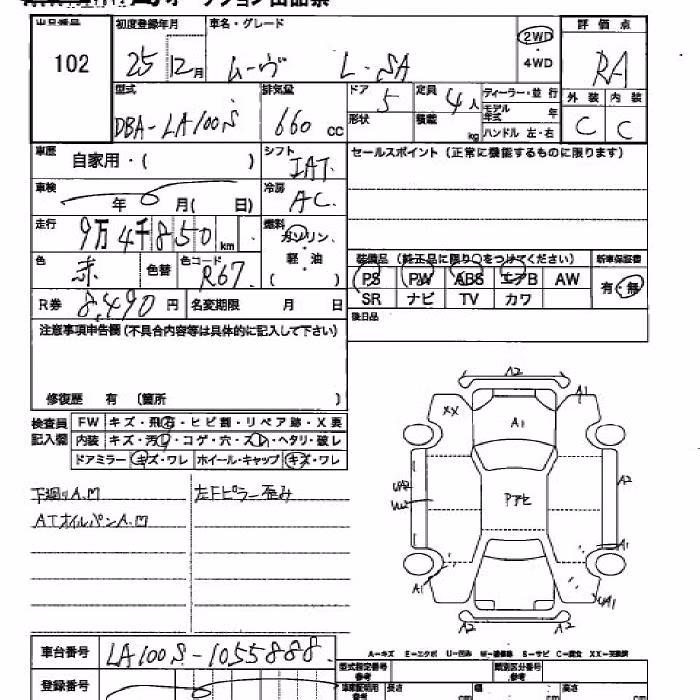 オークション出品票
出品番号 初度登録年月 車名・グレード 評価点
102 25 12月 ムーヴ L・SA 2WD・4WD RA
型式 排気量 ドア 定員 ディーラー・並行 外装 内装
DBA-LA100S 660cc 5 4人 モデル年式 年 C C
形状 積載 kg ハンドル 左・右
車歴 シフト セールスポイント(正常に機能するものに限ります)
自家用・( ) IAT
車検 冷房
年 月( 日) AC
走行 燃料
9万4千850km ガソリン・
色 色替 色コード 軽・油 装備品(純正品に限り○をつけてください) 新車保証書
赤 R67 ( ) PS PW ABS エアB AW 有・無
R券 8,490円 名変期限 月 日 SR ナビ TV カワ
注意事項申告欄(不具合内容等は具体的に記入して下さい) 後日品
修復歴 有 〔箇所 〕
検査員記入欄 FW キズ・飛石・ヒビ割・リペア跡・X要
内装 キズ・汚レ・コゲ・穴・スレ・ヘタリ・破レ
ドアミラー キズ・ワレ ホイール・キャップ キズ・ワレ
下廻りA.M 左Fピラー歪み
ATオイルパンA.M
A2
XX A1 A1
UA2 W2 Pアセ A2
A1
A1 UA1
A2 A2
車台番号 LA100S-1055888
A-キズ E-エクボ U-凹み W-補修跡 S-サビ C-腐食 XX-交換済
登録番号 型式指定番号 類別区分番号
車庫証明用参考 長さ cm 幅 cm 高さ cm